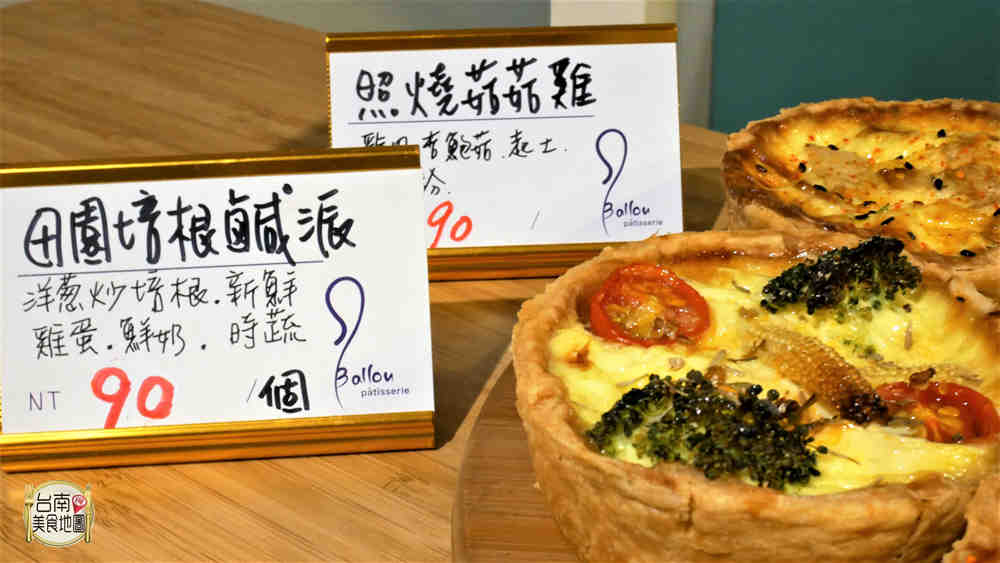 照燒菇菇雞
杏鮑菇.起士.
90 /
Ballou
pâtisserie
田園培根鹹派
洋蔥炒培根.新鮮
雞蛋.鮮奶.時蔬
NT 90 /個
Ballou
pâtisserie
台南
美食地圖